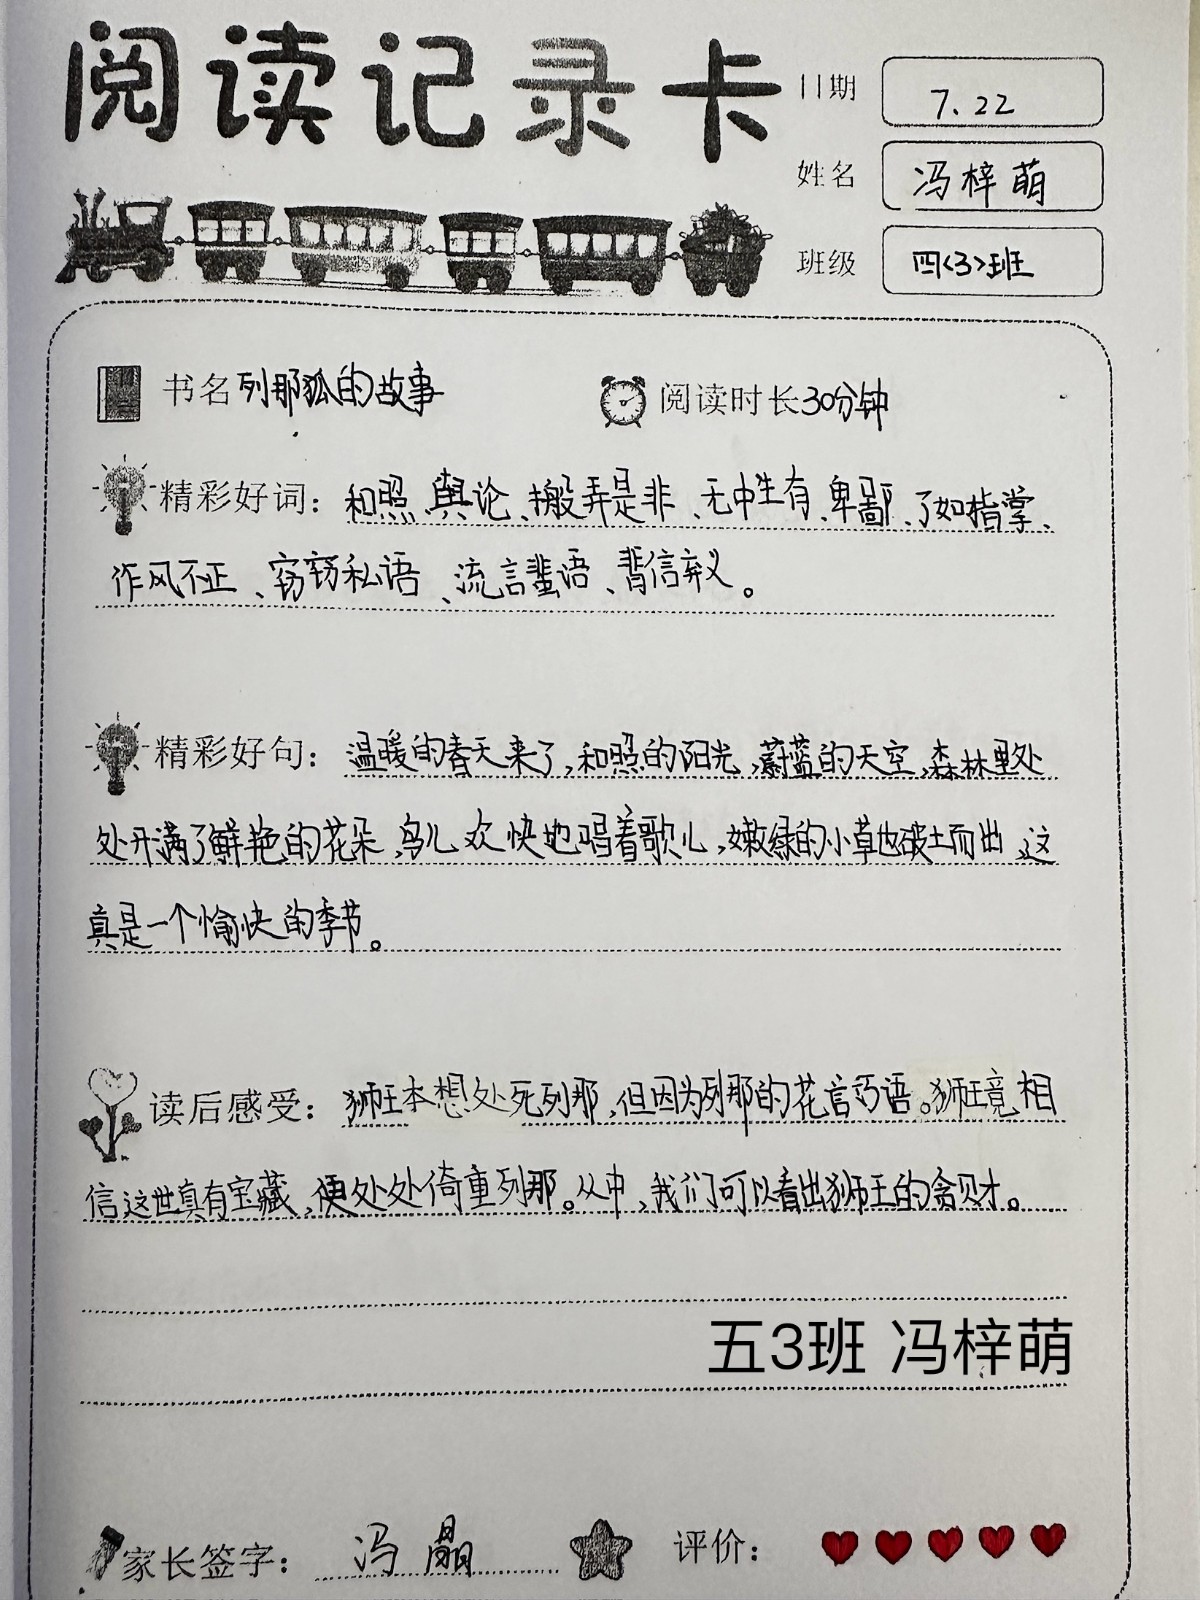 阅读记录卡
日期 7.22
姓名 冯梓萌
班级 四<3>班
书名 列那狐的故事 阅读时长30分钟
精彩好词：和照、舆论、搬弄是非、无中生有、卑鄙、了如指掌、
作风不正、窃窃私语、流言蜚语、背信弃义。
精彩好句：温暖的春天来了,和照的阳光,蔚蓝的天空,森林里处
处开满了鲜艳的花朵,鸟儿欢快地唱着歌儿,嫩绿的小草也破土而出,这
真是一个愉快的季节。
读后感受：狮王本想处死列那,但因为列那的花言巧语。狮王竟相
信这世真有宝藏,便处处倚重列那。从中,我们可以看出狮王的贪财。
五3班 冯梓萌
家长签字：冯晶 评价：